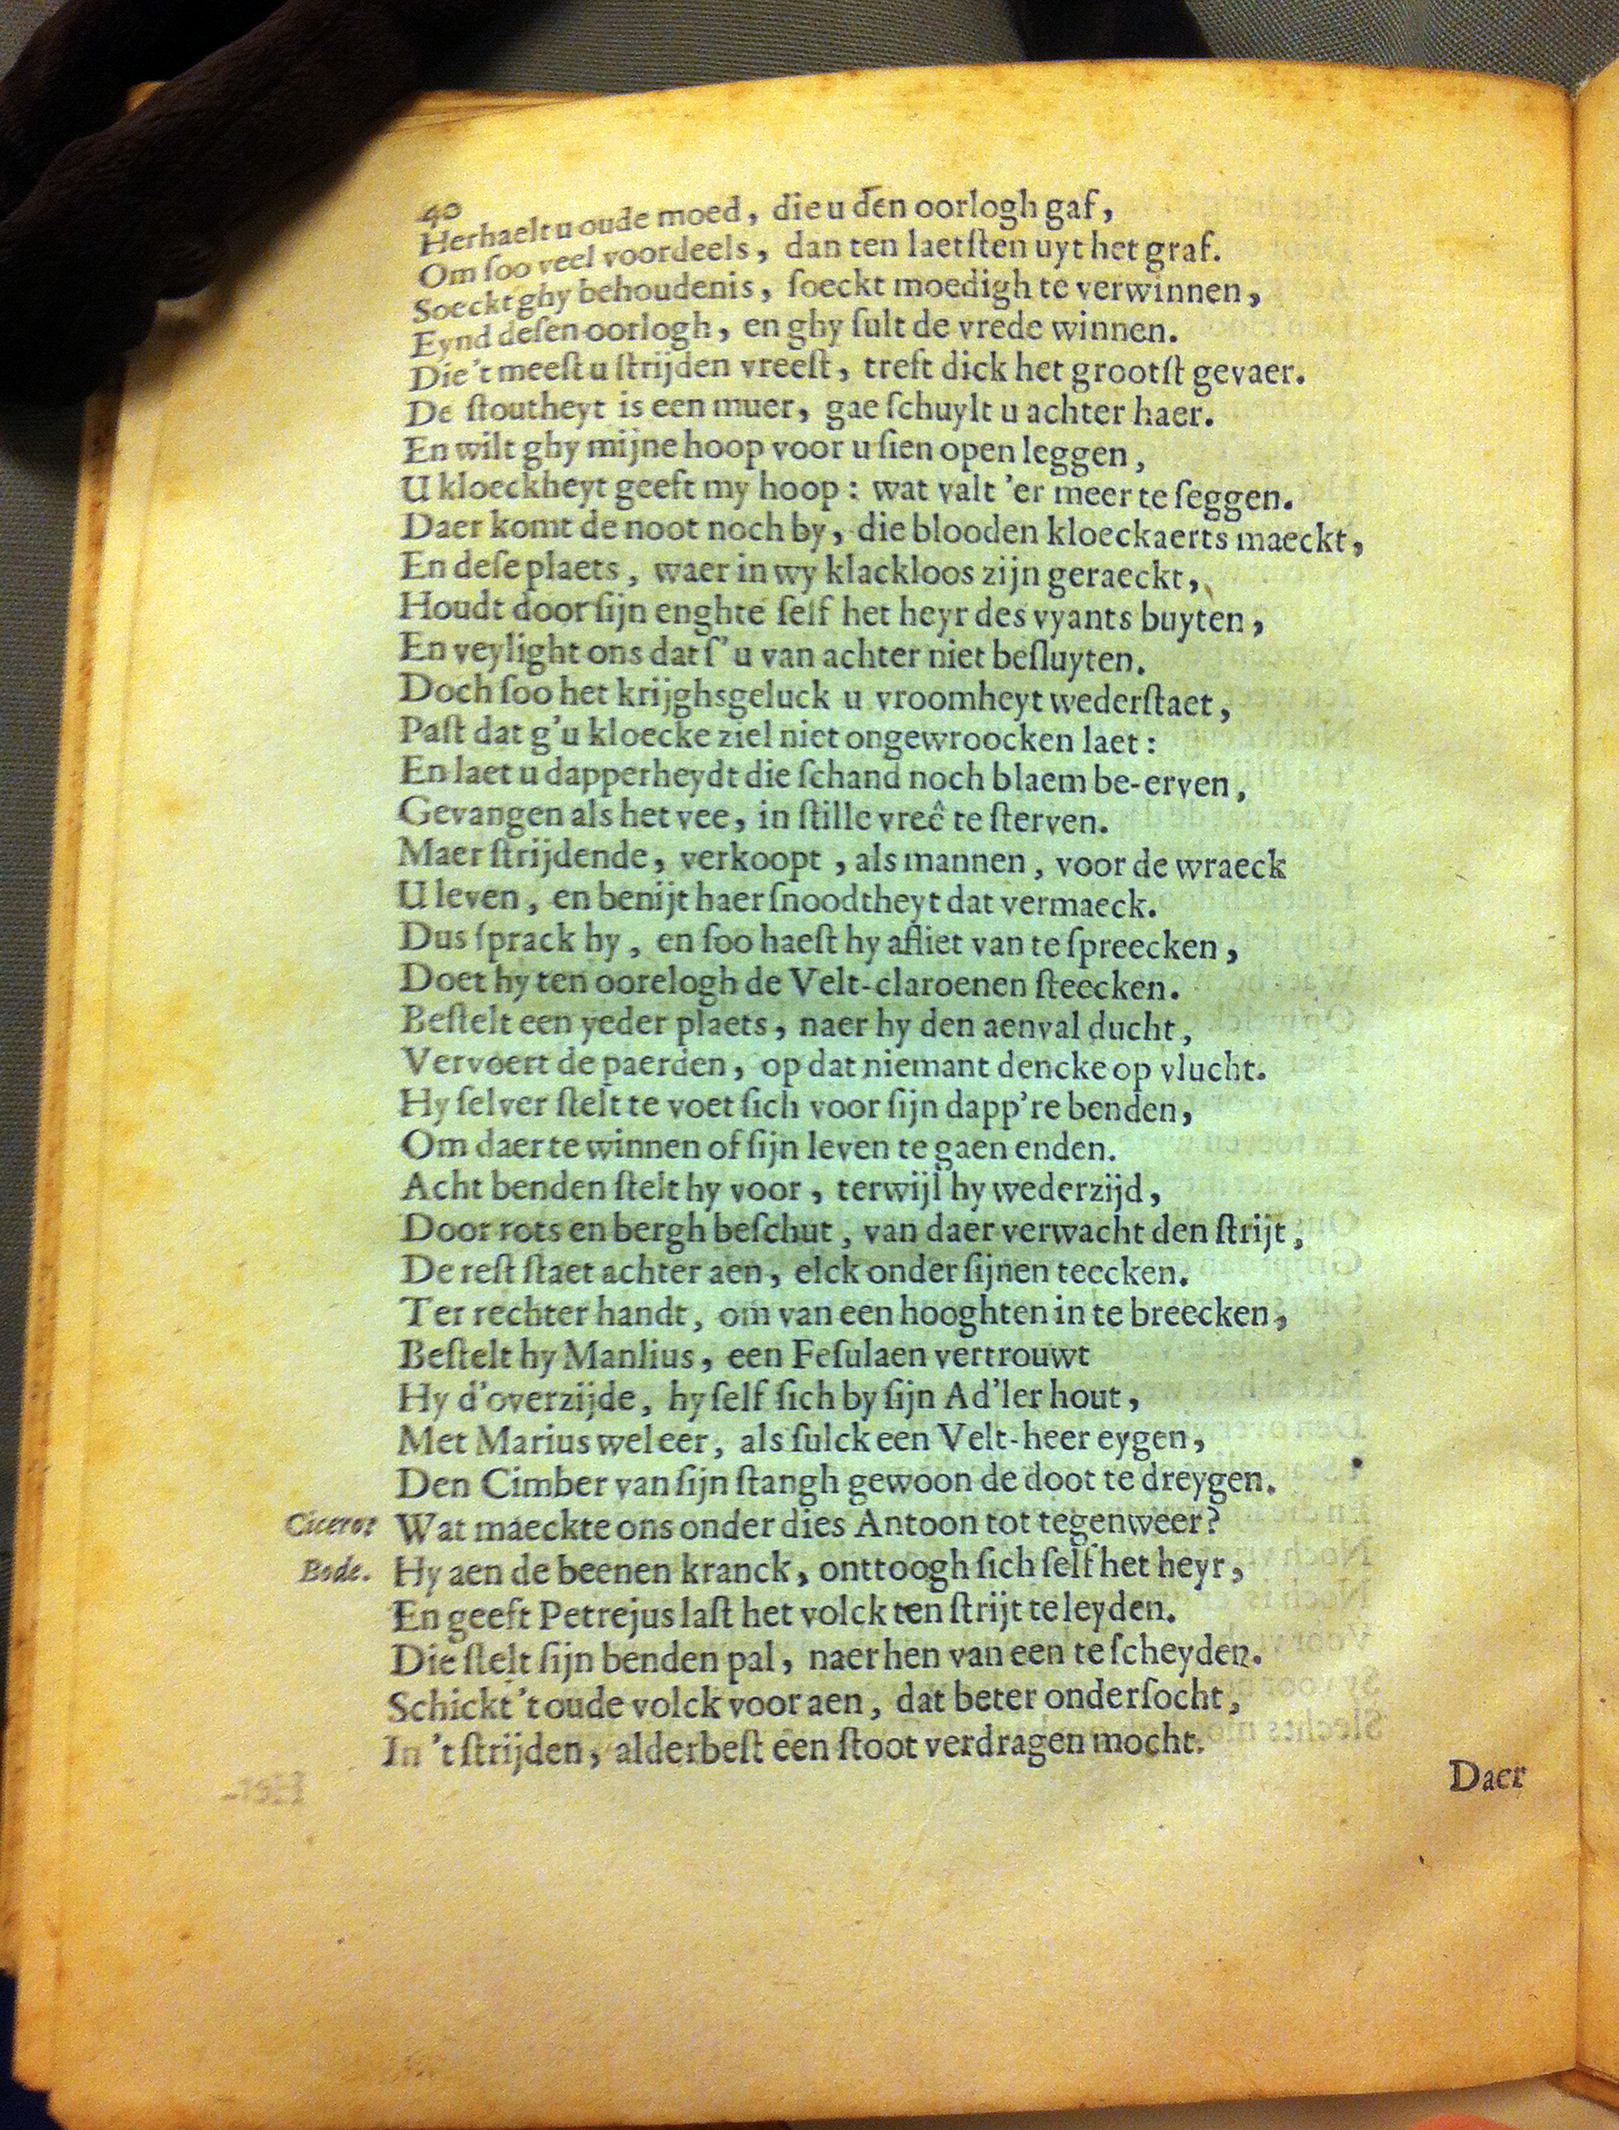 40
Herhaelt u oude moed, die u den oorlogh gaf,
Om ſoo veel voordeels, dan ten laetſten uyt het graf.
Soeckt ghy behoudenis, ſoeckt moedigh te verwinnen,
Eynd deſen oorlogh, en ghy ſult de vrede winnen.
Die 't meeſt u ſtrijden vreeſt, treft dick het grootſt gevaer.
De ſtoutheyt is een muer, gae ſchuylt u achter haer.
En wilt ghy mijne hoop voor u ſien open leggen,
U kloeckheyt geeft my hoop: wat valt 'er meer te ſeggen.
Daer komt de noot noch by, die blooden kloeckaerts maeckt,
En deſe plaets, waer in wy klackloos zijn geraeckt,
Houdt door ſijn enghte ſelf het heyr des vyants buyten,
En veylight ons dat ſ' u van achter niet beſluyten.
Doch ſoo het krijghsgeluck u vroomheyt wederſtaet,
Paſt dat g'u kloecke ziel niet ongewroocken laet:
En laet u dapperheydt die ſchand noch blaem be-erven,
Gevangen als het vee, in ſtille vreê te ſterven.
Maer ſtrijdende, verkoopt, als mannen, voor de wraeck
U leven, en benijt haer ſnoodtheyt dat vermaeck.
Dus ſprack hy, en ſoo haeſt hy afliet van te ſpreecken,
Doet hy ten oorelogh de Velt-claroenen ſteecken.
Beſtelt een yeder plaets, naer hy den aenval ducht,
Vervoert de paerden, op dat niemant dencke op vlucht.
Hy ſelver ſtelt te voet ſich voor ſijn dapp're benden,
Om daer te winnen of ſijn leven te gaen enden.
Acht benden ſtelt hy voor, terwijl hy wederzijd,
Door rots en bergh beſchut, van daer verwacht den ſtrijt,
De reſt ſtaet achter aen, elck onder ſijnen teecken.
Ter rechter handt, om van een hooghten in te breecken,
Beſtelt hy Manlius, een Feſulaen vertrouwt
Hy d'overzijde, hy ſelf ſich by ſijn Ad'ler hout,
Met Marius weleer, als ſulck een Velt-heer eygen,
Den Cimber van ſijn ſtangh gewoon de doot te dreygen.
Cicero: Wat maeckte ons onder dies Antoon tot tegenweer?
Bode. Hy aen de beenen kranck, onttoogh ſich ſelf het heyr,
En geeft Petrejus laſt het volck ten ſtrijt te leyden.
Die ſtelt ſijn benden pal, naer hen van een te ſcheyden.
Schickt 't oude volck voor aen, dat beter onderſocht,
In 't ſtrijden, alderbeſt een ſtoot verdragen mocht.
Daer